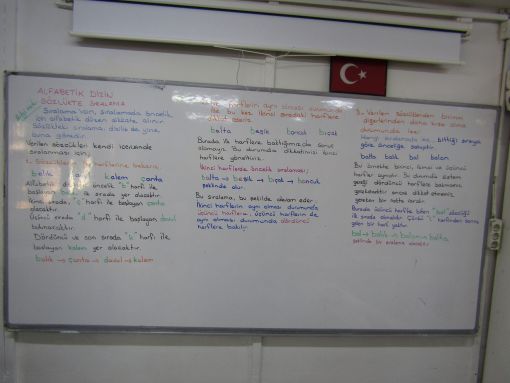 ALFABETİK DİZİN
SÖZLÜKTE SIRALAMA
Sıralama için, sıralamada öncelik
için alfabetik düzen dikkate alınır.
Sözlükteki sıralama dizilişi de yine
buna göredir.
Verilen sözcükleri kendi içerisinde
sıralanması için;
1. Sözcüklerin ilk harflerine bakarız.
balık kalem çanta
Alfabetik dizimde öncelik "b" harfi ile
başlayan balık ilk sırada yer alacaktır.
İkinci sırada, "ç" harfi ile başlayan çanta
olacaktır.
Üçüncü sırada "d" harfi ile başlayan davul
bulunacaktır.
Dördüncü ve son sırada "k" harfi ile
başlayan kalem yer alacaktır.
balık → çanta → davul → kalem
harflerin aynı olması durumunda
bu kez ikinci sıradaki harflere
dikkat ederiz.
balta beşik boncuk bıçak
Burada ilk harflere baktığımızda sonuç
alamayız. Bu durumda dikkatimizi ikinci
harflere yöneltiriz.
İkinci harflerde öncelik sıralaması;
balta → beşik → bıçak → boncuk
şeklinde olur.
Bu sıralama, bu şekilde devam eder.
İkinci harflerin aynı olması durumunda
üçüncü harflere, üçüncü harflerin de
aynı olması durumunda dördüncü
harflere bakılır.
3. Verilen sözcüklerden birinin
diğerlerinden daha kısa olma
durumunda ise;
bittiği sıraya
göre önceliğe sahiptir.
balta balık bal balon
Bu örnekte birinci, ikinci ve üçüncü
harfler aynıdır. Bu durumda sistem
gereği dördüncü harflere bakmamız
gerekirken ancak dikkat etmemiz
gereken bir nokta vardır.
Burada üçüncü harfte biten "bal" sözcüğü
ilk sırada olmalıdır. Çünkü "l" harfinden sonra
gelen bir harf yoktur.
bal → balık → balon → balta
şeklinde bir sıralama olacaktır.